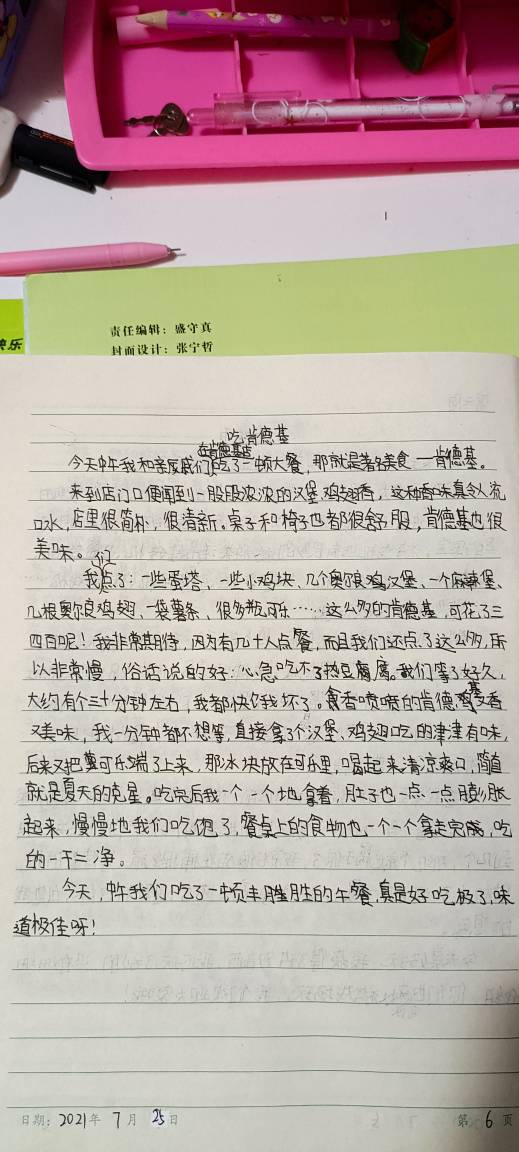 快乐
责任编辑：盛守真
封面设计：张宁哲
吃肯德基
在肯德基店
今天中午我和亲戚我们吃了一顿大餐，那就是著名美食——肯德基。
来到店门口便闻到一股股浓浓的汉堡、鸡翅香，这种香味真令人流
口水，店里很简朴，很清新。桌子和椅子也都很舒服，肯德基也很
美味。
我们点了：一些蛋塔、一些小鸡块、几个奥尔良鸡汉堡、一个麻辣堡、
几根奥尔良鸡翅、一袋薯条、很多瓶可乐……这么多的肯德基，可花了三
四百呢！我非常期待，因为有几十人点餐，而且我们还点了这么多，所
以非常慢，俗话说的好：心急吃不了热豆腐。我们等了好久，
大约有个三十分钟左右，我都快饿坏了。香喷喷的肯德基香
又美味，我一分钟都不想等，直接拿了个汉堡、鸡翅吃的津津有味，
后来又把可乐端了上来，那冰块放在可乐里，喝起来清凉爽口，简直
就是夏天的克星。吃完后我一个一个地拿着，肚子也一点一点膨胀
起来，慢慢地我们吃饱了，餐桌上的食物也一个一个拿走完，吃
的一干二净。
今天，中午我们吃了一顿丰胜的午餐，真是好吃极了，味
道极佳呀！
日期：2021年 7月 25日
第 6 页